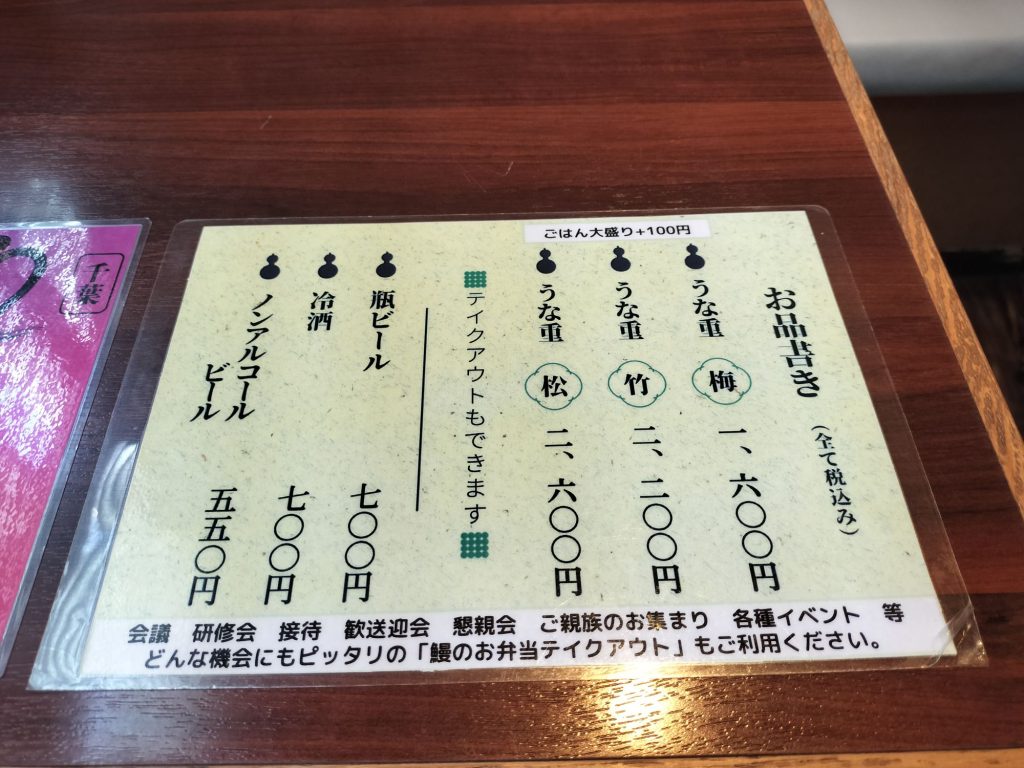 お品書き（全て税込み）
ごはん大盛り+100円
うな重 梅 一、六〇〇円
うな重 竹 二、二〇〇円
うな重 松 二、六〇〇円
テイクアウトもできます
瓶ビール 七〇〇円
冷酒 七〇〇円
ノンアルコール
ビール 五五〇円
会議 研修会 接待 歓送迎会 懇親会 ご親族のお集まり 各種イベント 等
どんな機会にもピッタリの「鰻のお弁当テイクアウト」もご利用ください。
千葉